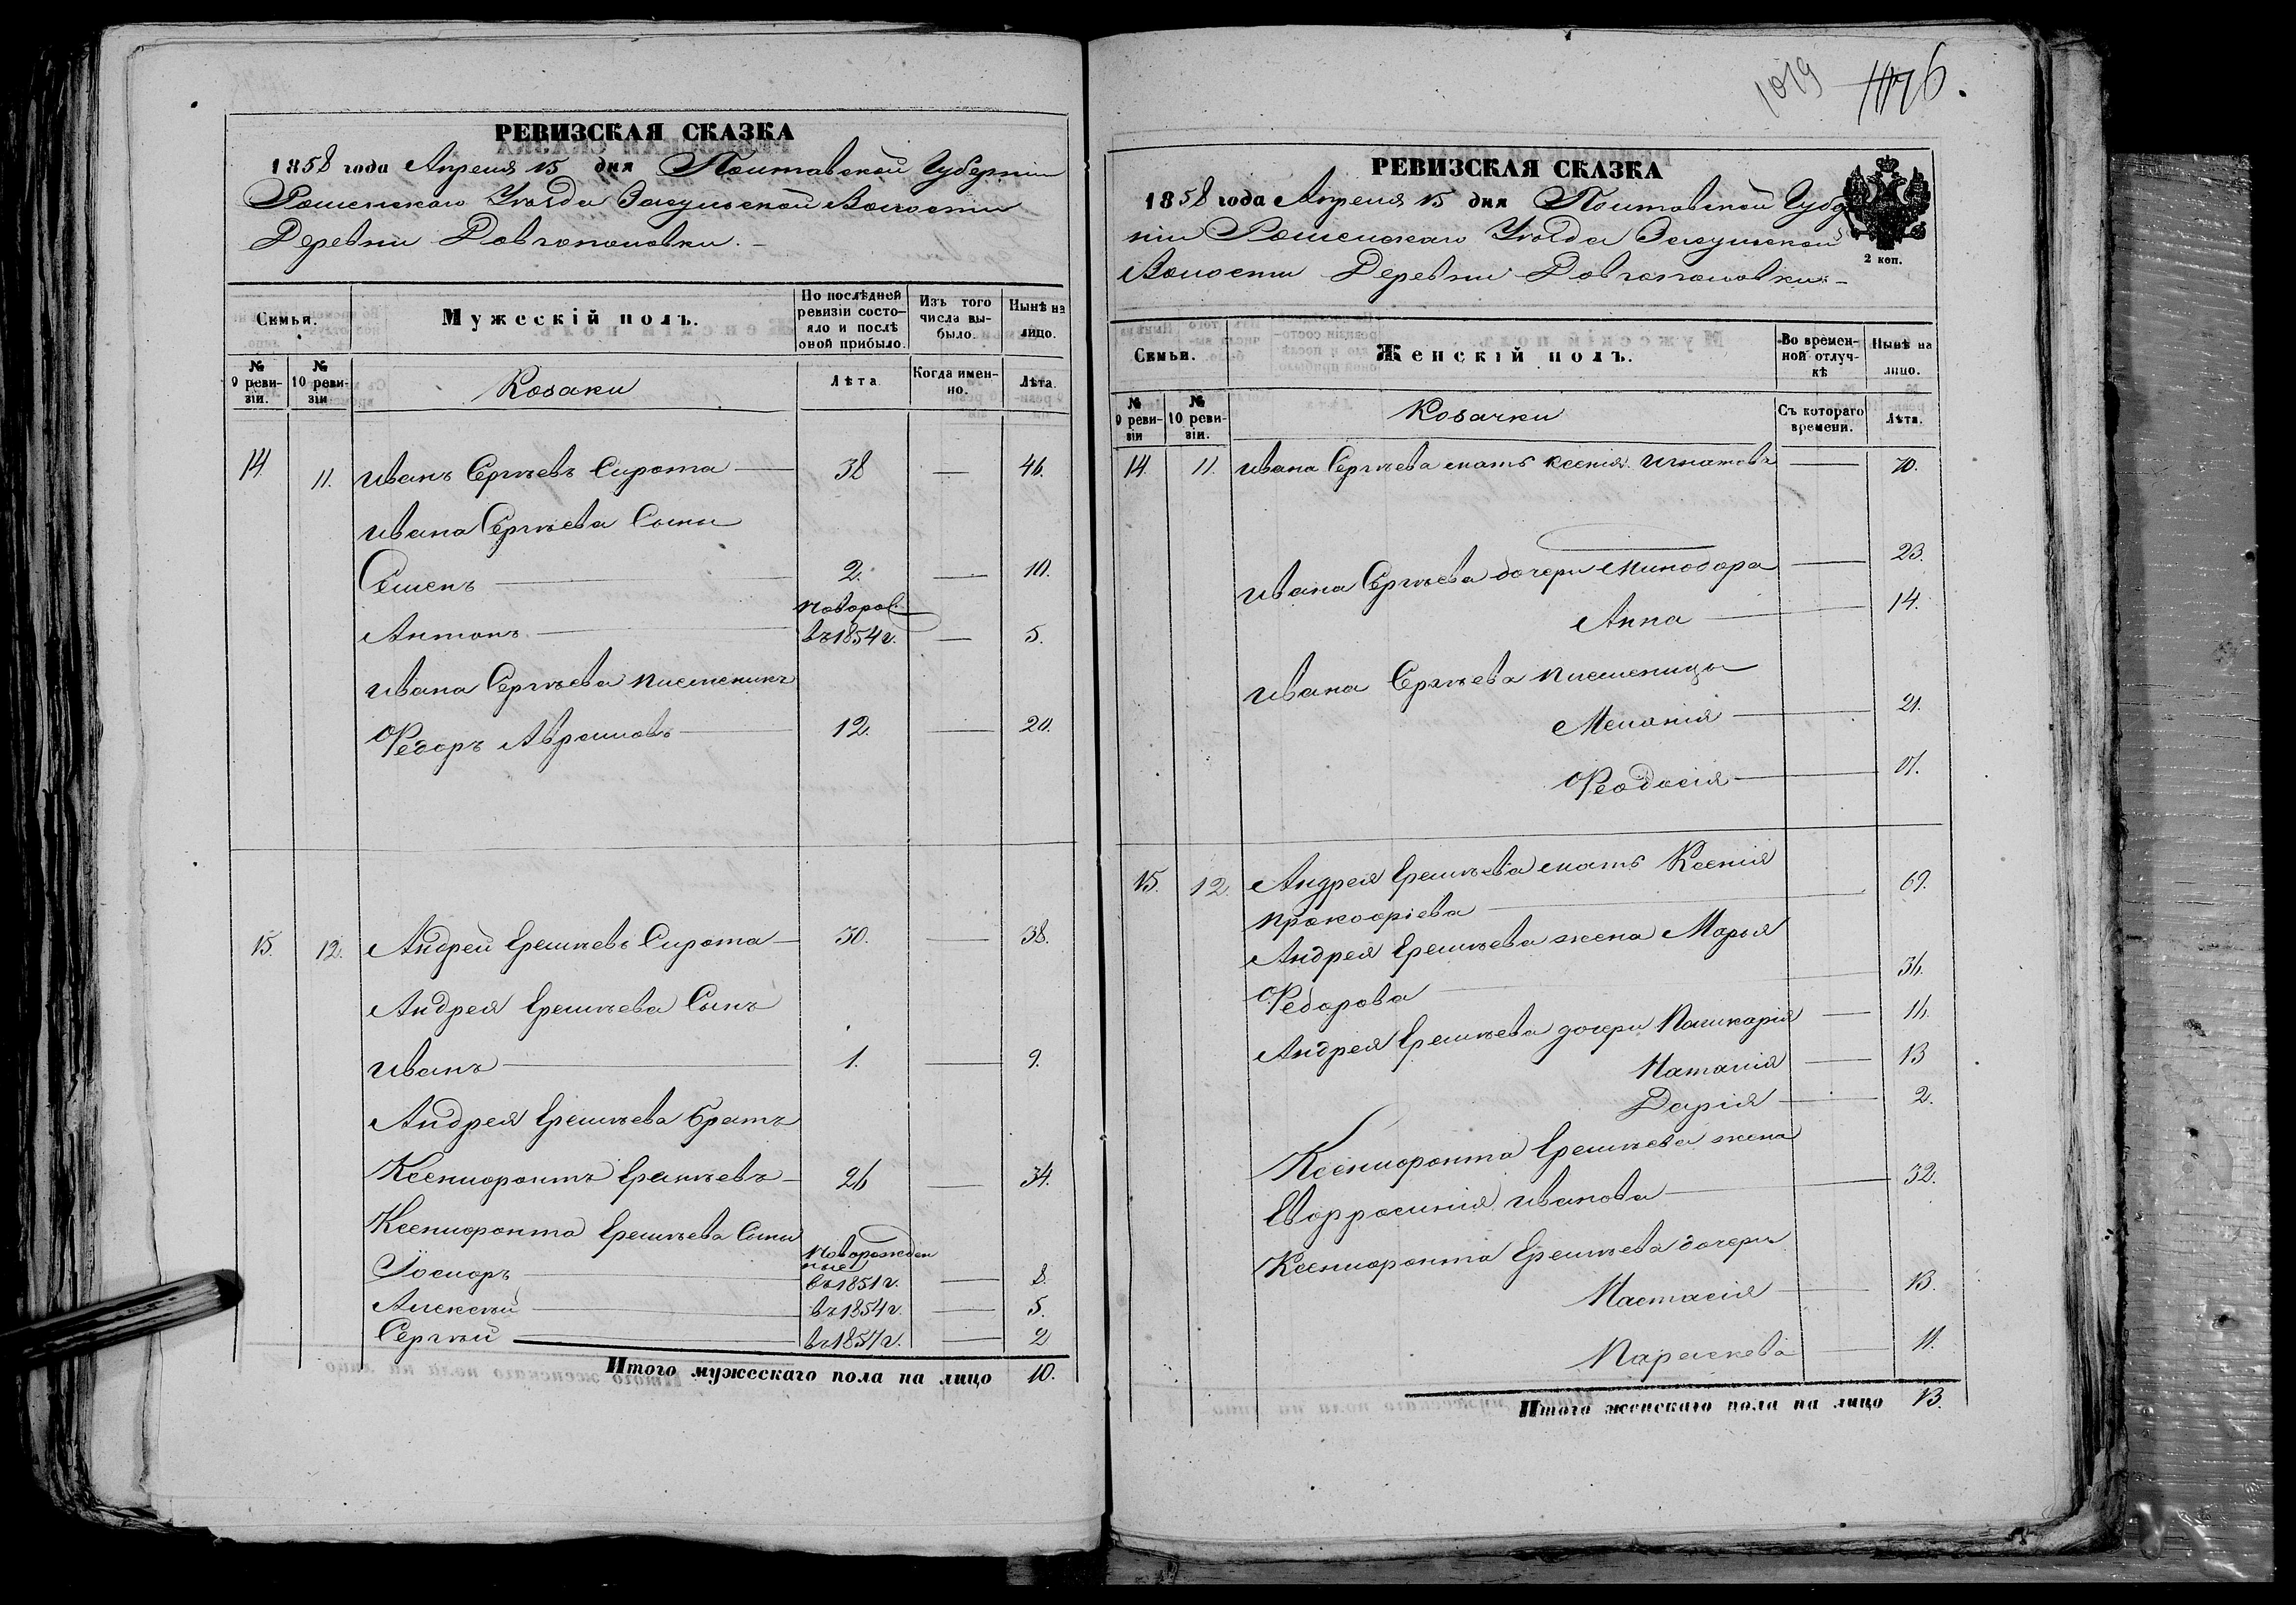 РЕВИЗСКАЯ СКАЗКА
1858 года Апреля 15 дня Полтавской Губерніи
Роменскаго Уѣзда Засульской Волости
Деревни Довгополовки.
Семьи.
Мужескій полъ.
По послѣдней ревизіи состояло и послѣ оной прибыло.
Изъ того числа выбыло.
Нынѣ на лицо.
№ 9 ревизіи.
№ 10 ревизіи
Козаки
Лѣта.
Когда именно.
Лѣта.
14. 11. Иванъ Сергѣевъ Сирота — 38 — 46.
Ивана Сергѣева Сыны
Семенъ — 2. — 10.
новорож.
Антонъ — въ 1854 г. — 5.
Ивана Сергѣева племеникъ
Федоръ Аврамовъ — 12. — 20.
15. 12. Андрей Ереmѣевъ Сирота — 30. — 38.
Андрея Еремѣева Сынъ
Иванъ — 1. — 9.
Андрея Еремѣева братъ
Ксенофонтъ Еремѣевъ — 26 — 34.
Ксенофонта Еремѣева Сыны
новорожден
ные
Іосифъ — въ 1851 г. — 8.
Алексѣй — въ 1854 г. — 5.
Сергѣй — въ 1857 г. — 2
Итого мужескаго пола на лицо 10.
1019 1076.
РЕВИЗСКАЯ СКАЗКА
1858 года Апреля 15 дня Полтавской Губер
ніи Роменскаго Уѣзда Засульской
Волости Деревни Довгополовки.
2 коп.
Семьи.
Женскій полъ.
Во временной отлучкѣ
Нынѣ на лицо.
№ 9 ревизіи
№ 10 ревизіи.
Козачки
Съ котораго времени.
Лѣта.
14. 11. Ивана Сергѣева мать Ксенія Игнатова — 70.
Ивана Сергѣева дочери Минодора — 23.
Анна — 14.
Ивана Сергѣева племеницы
Меланія — 21.
Феодосія — 17.
15. 12. Андрея Еремѣева мать Ксенія
Прокофіева — 67.
Андрея Еремѣева жена Марья
Федорова — 36.
Андрея Еремѣева дочери Поликарія — 16.
Наталія — 13
Дарія — 2.
Ксенофонта Еремѣева жена
Евфросинія Иванова — 32.
Ксенофонта Еремѣева дочери
Настасія — 13.
Параскева — 11.
Итого женскаго пола на лицо 13.